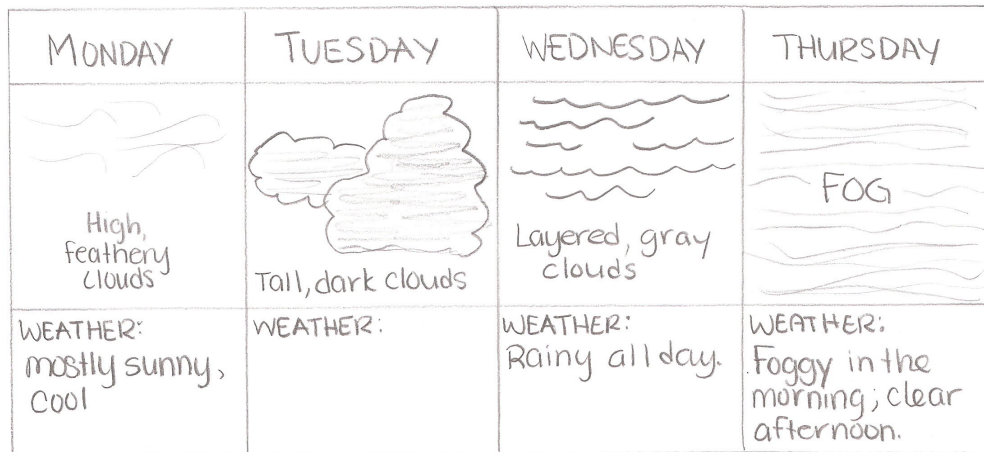 MONDAY
TUESDAY
WEDNESDAY
THURSDAY
High,
feathery
clouds
Tall, dark clouds
Layered, gray
clouds
FOG
WEATHER:
mostly sunny,
cool
WEATHER:
WEATHER:
Rainy all day.
WEATHER:
Foggy in the
morning; clear
afternoon.